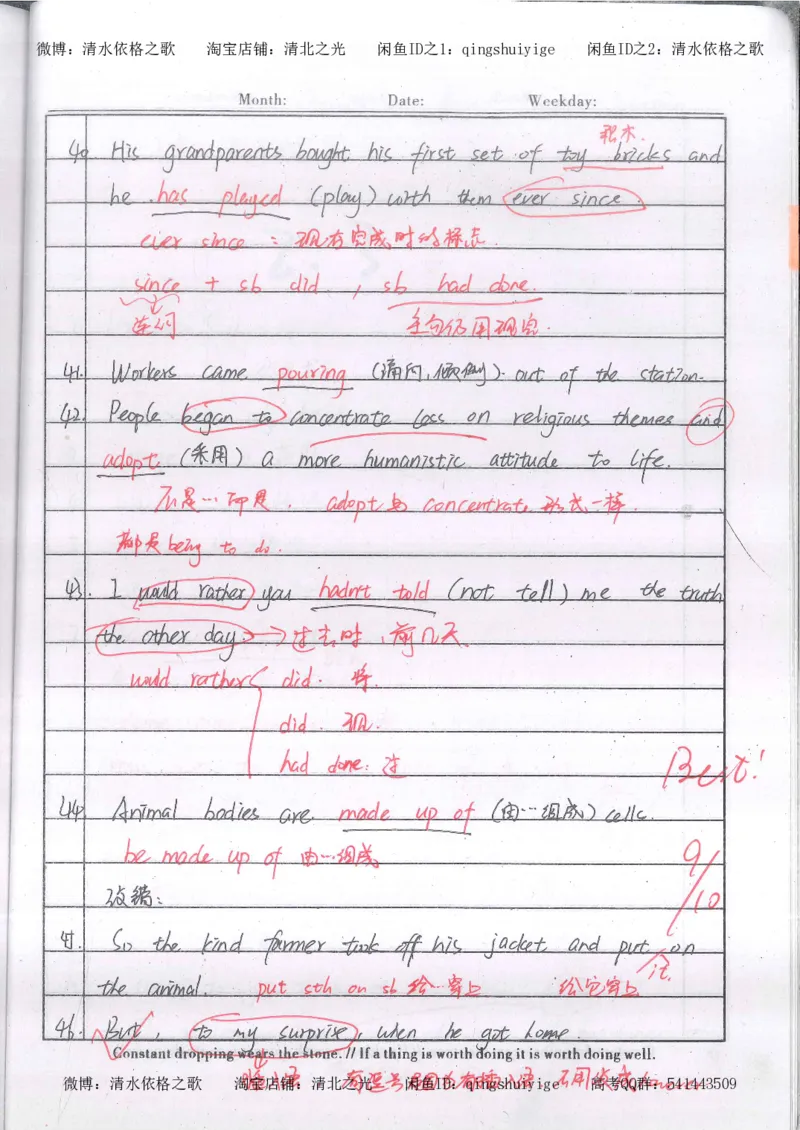 微博：清水依格之歌 淘宝店铺：清北之光 闲鱼ID之1：qingshuiyige 闲鱼ID之2：清水依格之歌
Month: Date: Weekday:
积木.
40 His grandparents bought his first set of toy bricks and
he has played (play) with them ever since.
ever since : 现在完成时的标志.
since + sb did , sb had done.
连词 主句仍用现完.
41. Workers came pouring (涌向,倾倒). out of the station.
42. People began to concentrate less on religious themes and
adopt (采用) a more humanistic attitude to life.
不是…而是. adopt与 concentrate 形式一样.
都是being to do.
43. I would rather you hadn't told (not tell) me the truth
the other day →过去时,前几天.
would rather did. 将.
did. 现.
had done: 过
Best!
44. Animal bodies are made up of (由…组成) cells.
be made up of 由…组成
9/10
改错:
45. So the kind farmer took off his jacket and put on
it.
the animal. put sth on sb 给…穿上 给它穿上
46. But, to my surprise, when he got home.
Constant dropping wears the stone. // If a thing is worth doing it is worth doing well.
微博：清水依格之歌 淘宝店铺：清北之光 闲鱼ID之1：qingshuiyige 高考QQ群：541443509